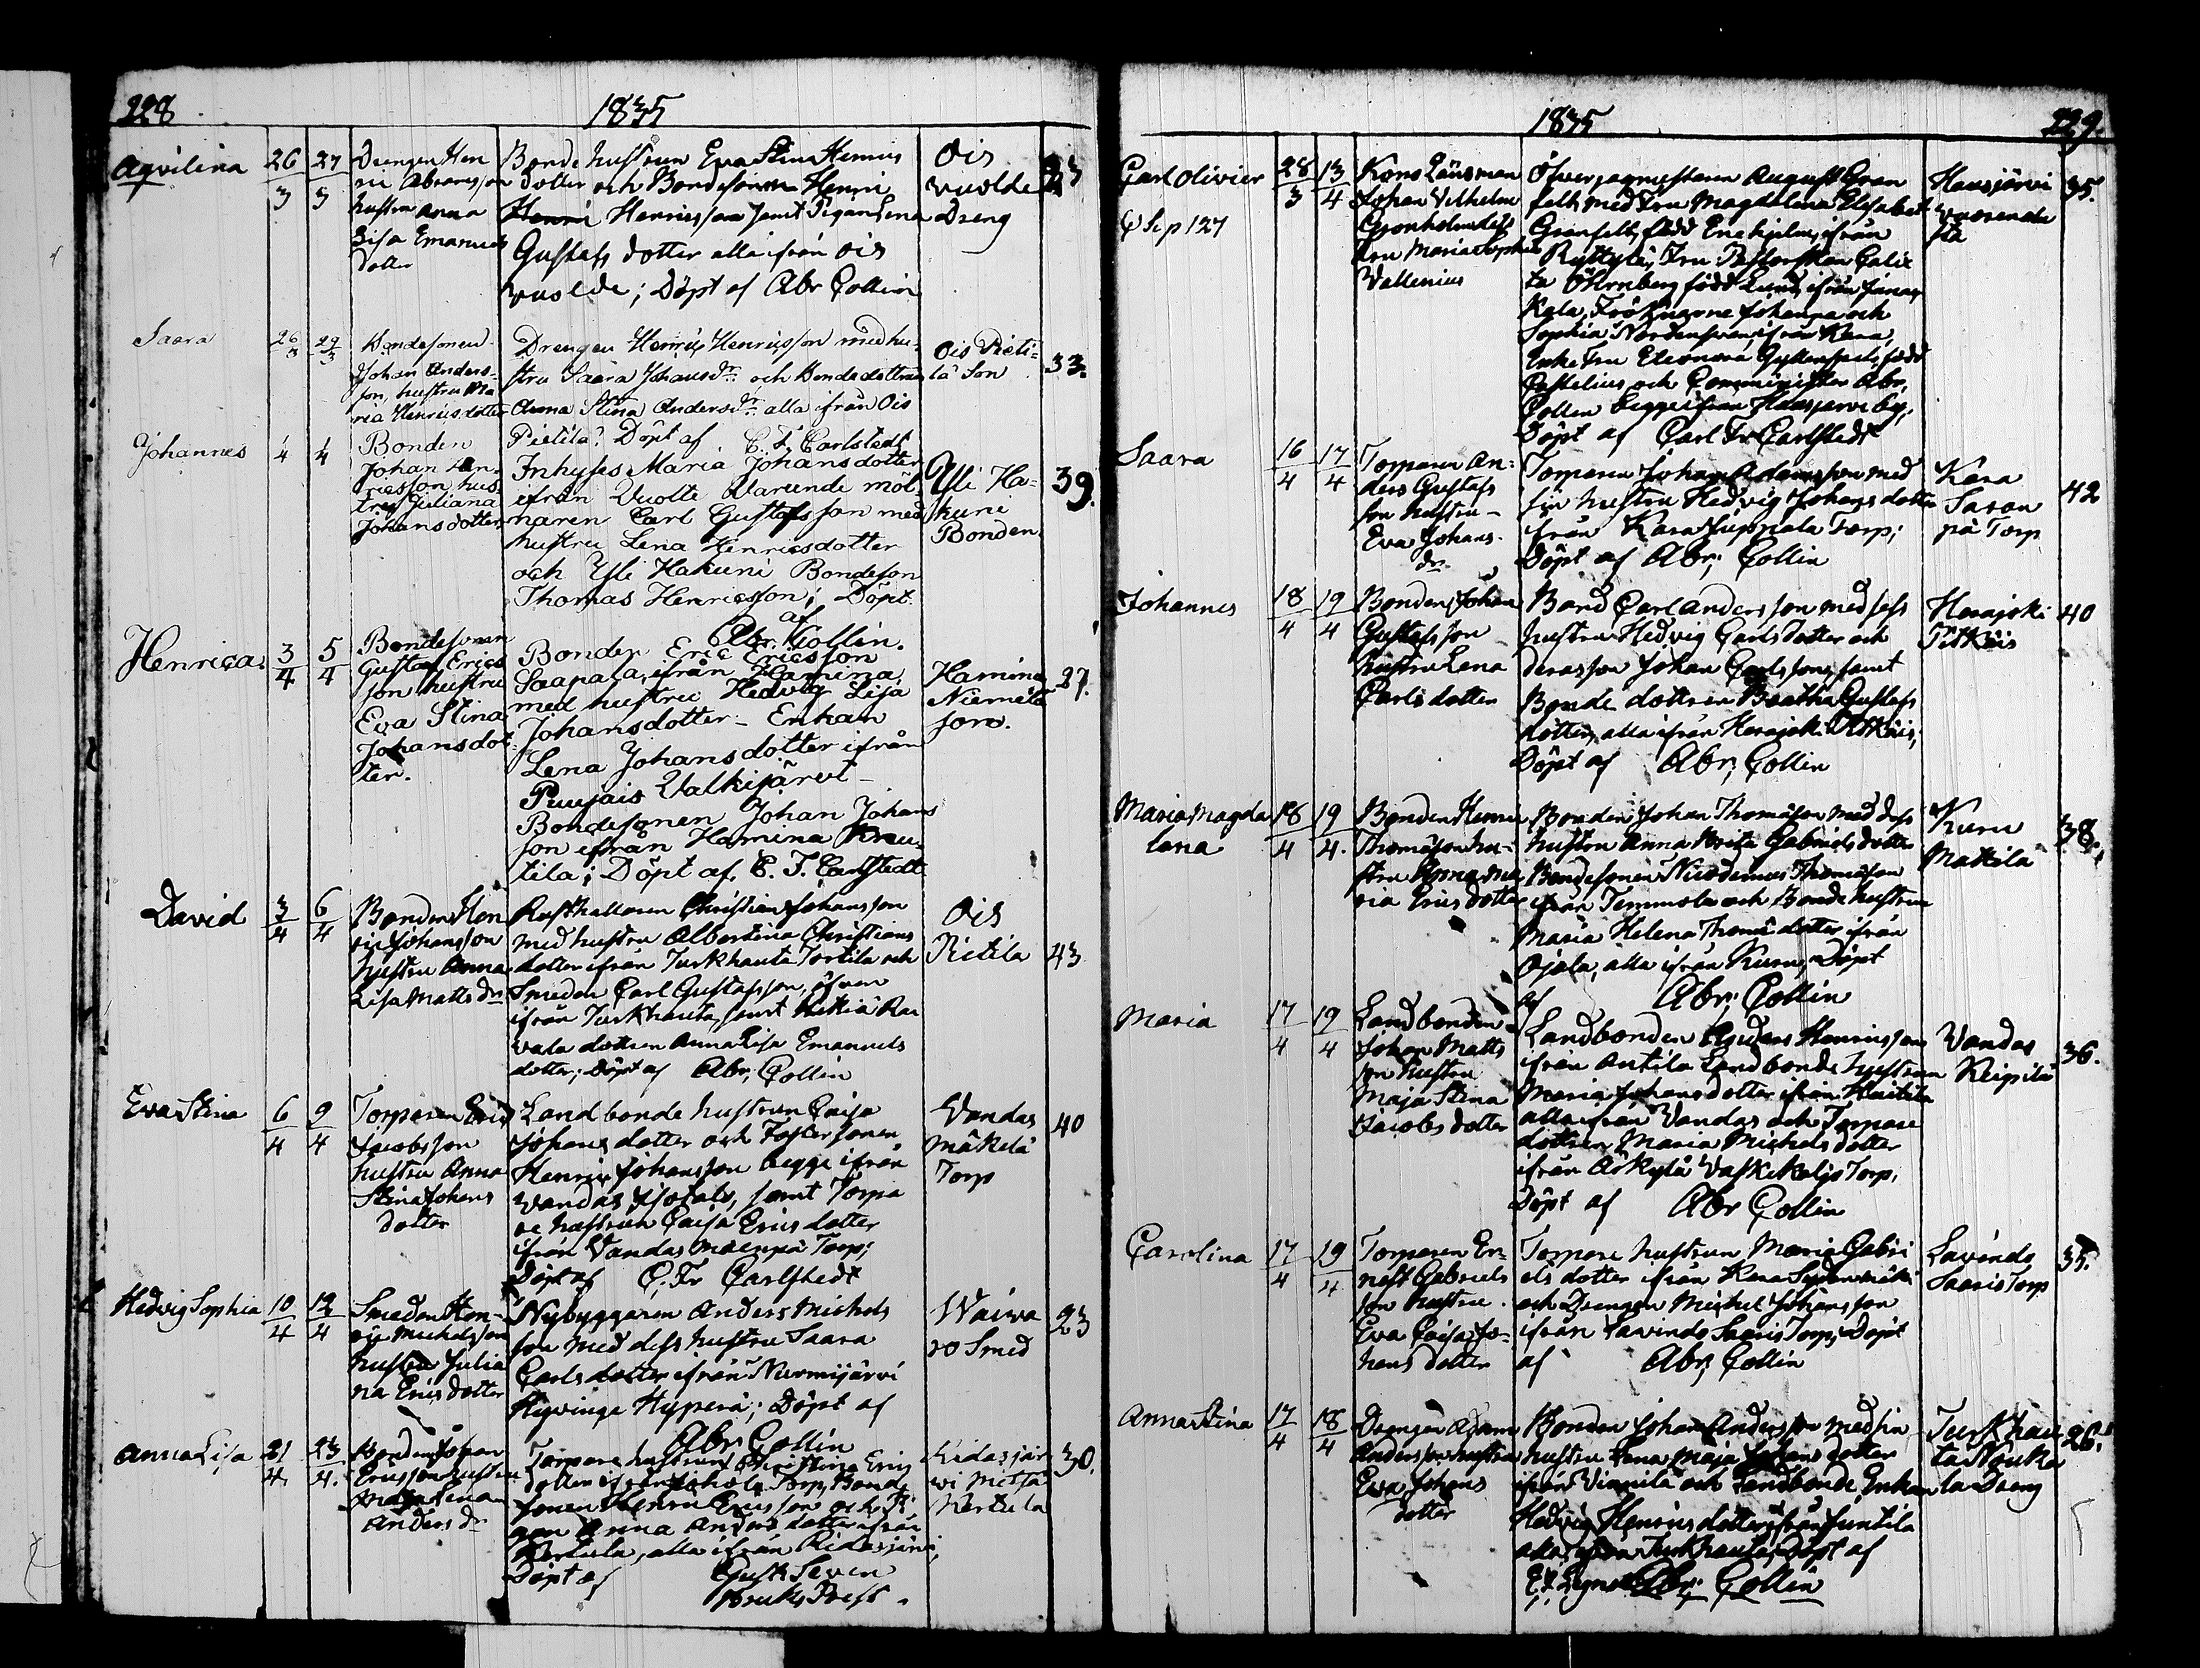 228 1835
Aqvilina 26/3 27/3
Drengen Hen
ric Abramsson
hustru Anna
Lisa Emanuels
dotter
Bonde hustrun Eva Stina Henrics
dotter och Bondesonen Henric
Henricsson samt Pigan Lena
Gustafs dotter alla ifrån Ois
Vuolde; Döpt af Abr Collin
Ois
vuolde
Dreng
Saara 26/3 29/3
Bondesonen
Johan Anders-
son, hustru Ma
ria Henricsdotter
Drengen Henric Henricsson med hu-
stru Saara Johansdr: och Bondedottren
Anna Stina Andersdr: alla ifrån Ois
Pietilä. Döpt af C. F. Carlstedt
Ois Pieti-
lä Son
33.
Johannes 4 4
Bonden
Johan Hen-
ricsson hus-
tru Juliana
Johansdotter
Inhyses Maria Johansdotter
ifrån Vuolte Varunde möl-
naren Carl Gustafsson med
hustru Lena Henricsdotter
och Yli Hakuni Bondeson
Thomas Henricsson; Döpt
af
Abr. Collin.
Yli Ha-
kuni
Bonden
39.
Henrica 3/4 5/4
Bondesonen
Gustaf Erics
son hustru
Eva Stina
Johansdot-
ter.
Bonden Eric Ericsson
Saapala, ifrån Hamina
med hustru Hedvig Lisa
Johansdotter - Enkan
Lena Johansdotter ifrån
Puujais Valkijärvi -
Bondesonen Johan Johans
son ifrån Hamina
tila; Döpt af. C. F. Carlstedt
Hamina
Niemelä
son.
27.
David 3/4 6/4
Bonden Hen
ric Johansson
hustru Anna
Lisa Matts dr
Rusthållaren Christian Johansson
med hustru Albertina Christians
dotter ifrån Turkhauta Tortila och
Smeden Carl Gustafsson, äfven
ifrån Turkhauta, samt
dottren Anna Lisa Emanuels
dotter; Döpt af Abr; Collin
Ois
Pietila
43
Eva Stina 6/4 9/4
Torparen Eric
Jacobsson
hustru Anna
Stina Johans
dotter
Landbonde hustrun Caisa
Johans dotter och Foster sonen
Henric Johansson begge ifrån
Vandas samt Torpa
re hustrun Caisa Erics dotter
ifrån Vandas Torp;
Döpt af C. Fr Carlstedt
Vandas
Mäkelä
Torp
40
Hedvig Sophia 10/4 12/4
Smeden Hen-
ric Michelsson
hustru Julia
na Erics dotter
Nybyggaren Anders Michels
son med dess hustru Saara
Carls dotter ifrån Nurmijärvi
Hyvinge Hyperä; Döpt af
Abr. Collin
Waiva
ro Smed
23
Anna Lisa 21/4 23/4.
Bonden Johan
Ericsson hustru
Maja Lena
Anders dr
Torpare hustrun Christina Erics
dotter ifrån Torp, Bonde
sonen Henric Ericsson och Pi-
gan Anna Anders dotter ifrån
Kertula, alla ifrån Ridasjärvi;
Döpt af Gust. Leven
Bruks Prest.
Ridasjär
vi
Kertula
30.
1835 229.
Carl Olivier 28/3 13/4
Sep 127
Krono Länsman
Johan Vilhelm
Gronholm dess
Fru Maria Sophia
Vallenius
Öfverjägmästaren August Gran
felt med Fru Magdalena Elisabet
Granfelt, född Enehjelm, ifrån
Ryttylä, Fru Pastorskan
född Lund, ifrån Janak
kala, Fröknarne Johanna och
Sophia Nordensvan, ifrån Kara,
Enke Fru Eleonora född
och Comminister Abr.
Collin begge ifrån Hausjervi by,
Döpt af Carl Fr. Carlstedt
Hausjärvi
35.
Saara 16/4 17/4
Torparen An-
ders Gustafs
son hustru -
Eva Johans-
dr.
Torparen Johan Adamsson med
sin hustru Hedvig Johans dotter
ifrån Kara Torp;
Döpt af Abr; Collin
Kara
Saran
pä Torp
42
Johannes 18/4 19/4
Bonden Johan
Gustafsson
hustru Lena
Carls dotter
Bond Carl Andersson med dess
hustru Hedvig Carls dotter och
deras son Johan Carlsson, samt
Bonde dottren Beatha Gustafs
dotter, alla ifrån Herajoki Pitkäis;
Döpt af Abr; Collin
Herajoki
Pitkäis
40
Maria Magda
lena 18/4 19/4.
Bonden Henric
Thomasson hu-
stru Anna Ma
ria Erics dotter
Bonden Johan Thomasson med dess
hustru Anna Brita Gabriels dotter
Bondesonen Nicodemus Thomasson
ifrån Temmola och Bonde hustrun
Maria Helena Thomæ dotter ifrån
Ojala, alla ifrån Kuru, Döpt
af Abr; Collin
Kuru
Makila
38.
Maria 17/4 19/4
Landbonden
Johan Matts
son hustru
Maja Stina
Jacobs dotter
Landbonden Anders Henricsson
ifrån Antila Landbonde hustrun
Maria Johans dotter ifrån
alla ifrån Vandas och Torpare
dottren Maria Michels dotter
ifrån Torp,
Döpt af Abr Collin
Vandas
Keipilä
36.
Carolina 17/4 19/4
Torparen Er-
nest Gabriels
son hustru
Eva Caisa Jo-
hans dotter
Torpare hustrun Maria Gabri
els dotter ifrån Kara
och Drengen Michel Johansson
ifrån Lavindo Saaris Torp; Döpt
af Abr; Collin
Lavindo
Saaris Torp
35.
Anna Stina 17/4 18/4
Drengen Adam
Andersson hustru
Eva Johans
dotter
Bonden Johan Andersson med sin
hustru Lena Maja Johans dotter
ifrån och Landbonde Enkan
Hedvig Henrics dotter ifrån Juntila
alla ifrån Turkhauta, Döpt af
Abr; Collin
Turkhau
ta Nouka
la Dreng
26.